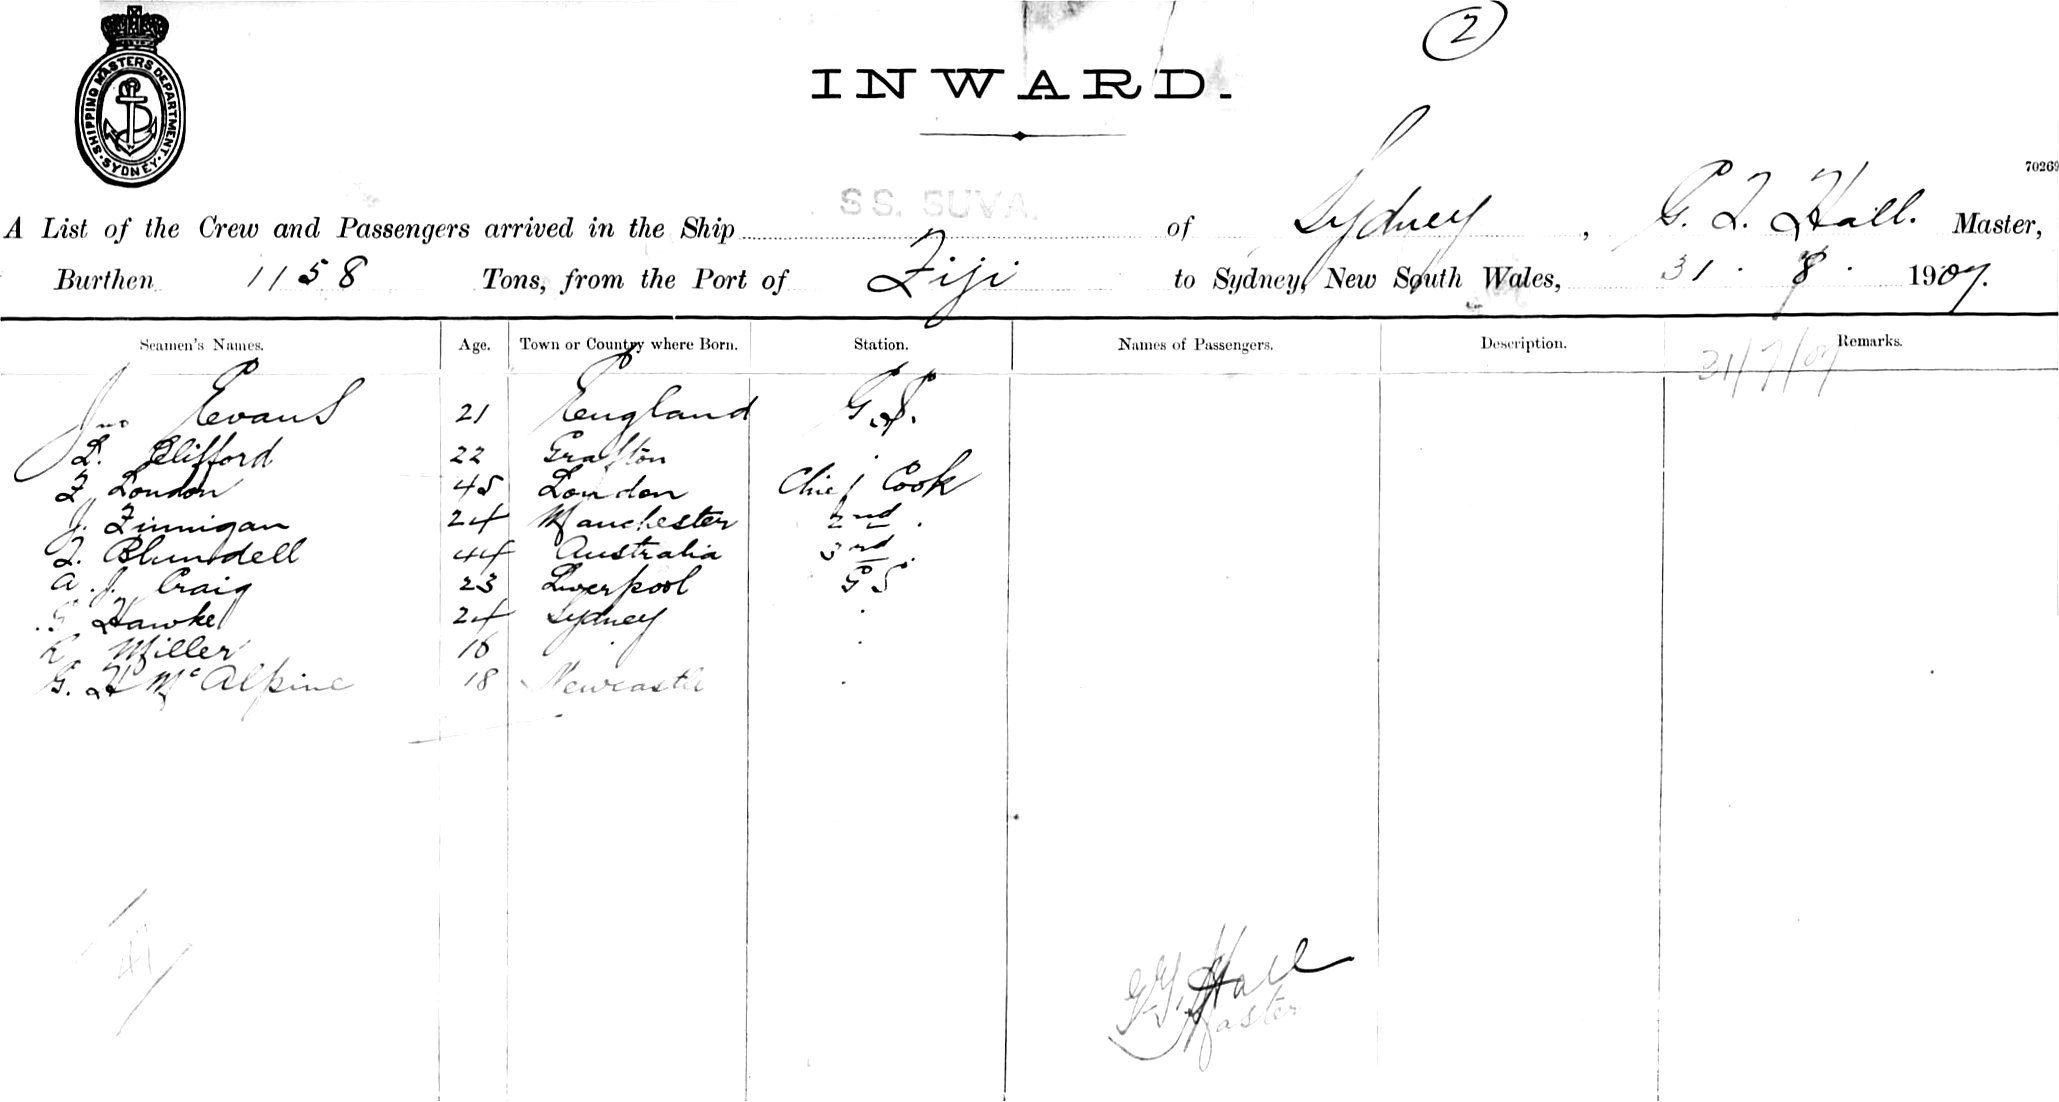 2
SHIPPING MASTERS DEPARTMENT. SYDNEY
INWARD.
70269
A List of the Crew and Passengers arrived in the Ship SS. SUVA. of Sydney, G. T. Hall. Master,
Burthen 1158 Tons, from the Port of Fiji to Sydney, New South Wales, 31. 8. 1907.
Seamen's Names. Age. Town or Country where Born. Station. Names of Passengers. Description. Remarks.
31/7/07
Jno Evans 21 England G.S.
L. Clifford 22 Grafton "
F. London 45 London Chief Cook
J. Finnigan 24 Manchester 2nd "
T. Blundell 44 Australia 3rd "
A. J. Craig 23 Liverpool GS
G Hawke 24 Sydney "
R Miller 16 " "
G. H McAlpine 18 Newcastle "
41
Hall
Master